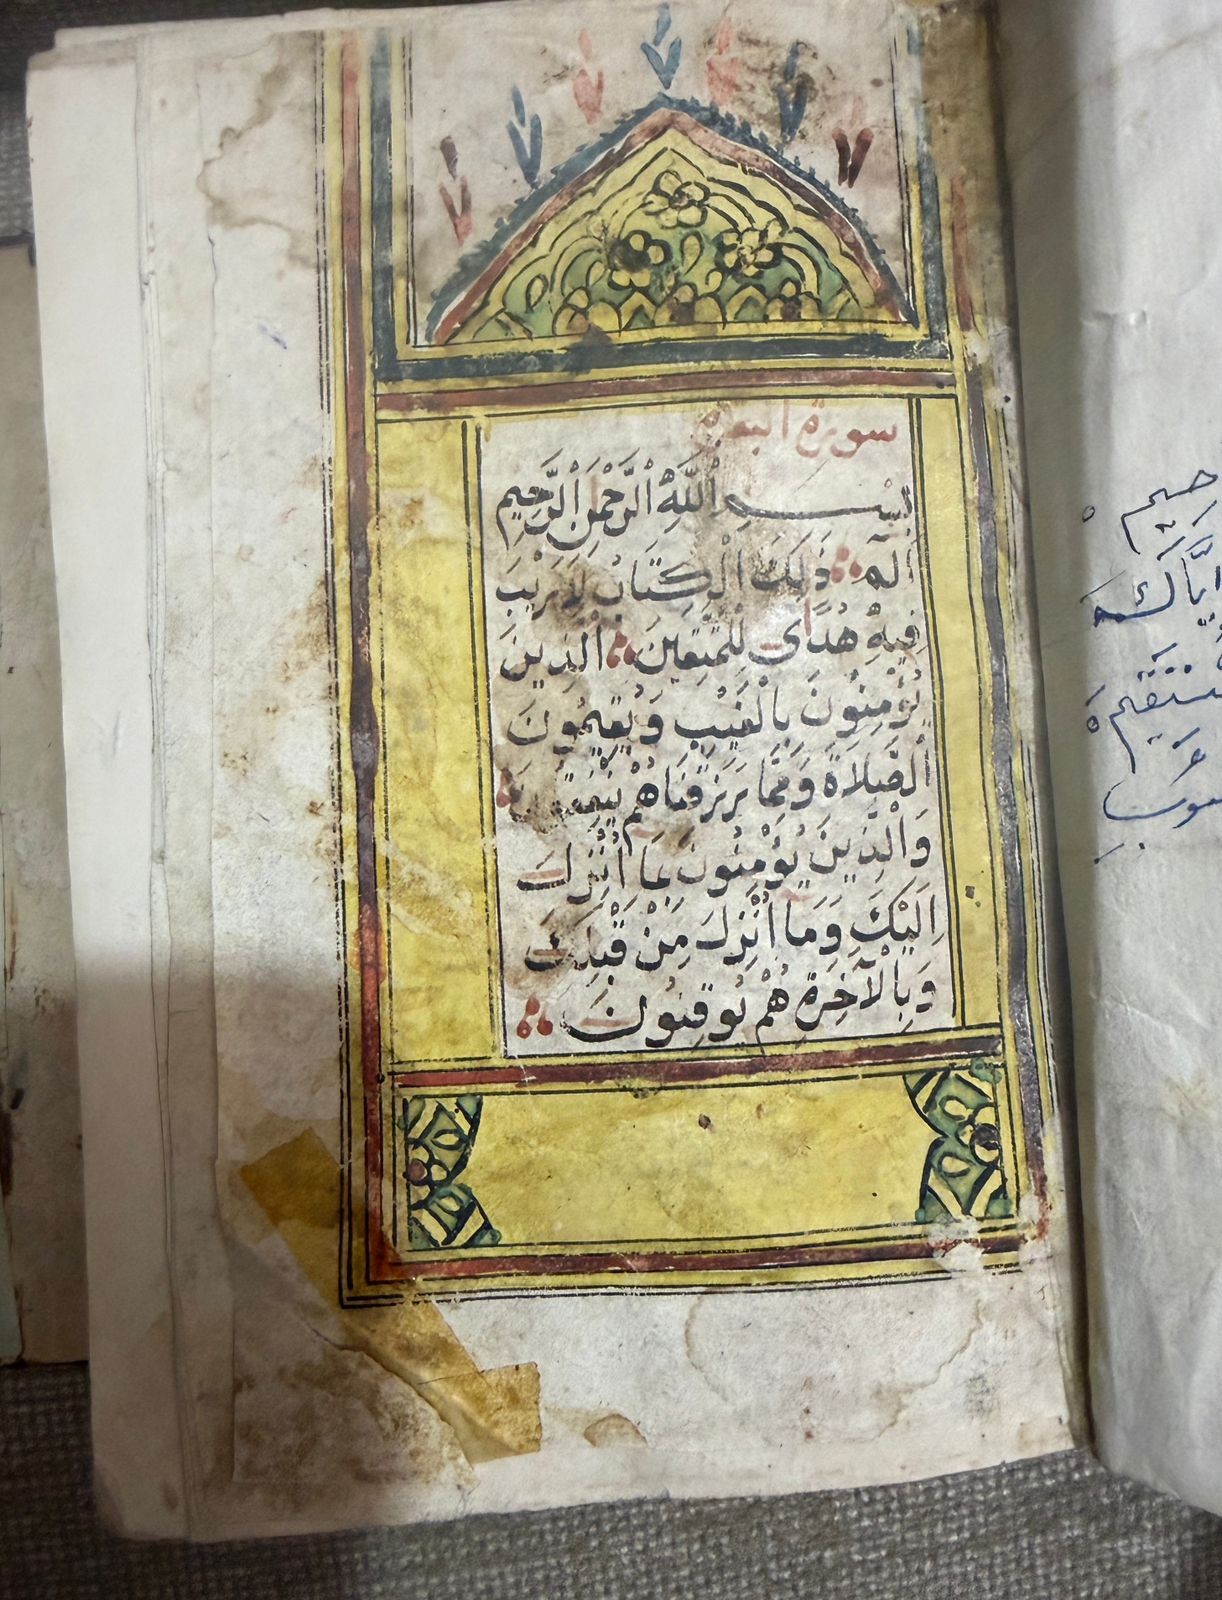 سورة البقرة
بِسْمِ اللَّهِ الرَّحْمَنِ الرَّحِيمِ
الٓمٓ ذَلِكَ الْكِتَابُ لَا رَيْبَ
فِيهِ هُدًى لِلْمُتَّقِينَ الَّذِينَ
يُؤْمِنُونَ بِالْغَيْبِ وَيُقِيمُونَ
الصَّلَاةَ وَمِمَّا رَزَقْنَاهُمْ يُنْفِقُونَ
وَالَّذِينَ يُؤْمِنُونَ بِمَا أُنْزِلَ
إِلَيْكَ وَمَا أُنْزِلَ مِنْ قَبْلِكَ
وَبِالْآخِرَةِ هُمْ يُوقِنُونَ
إِيَّاكَ